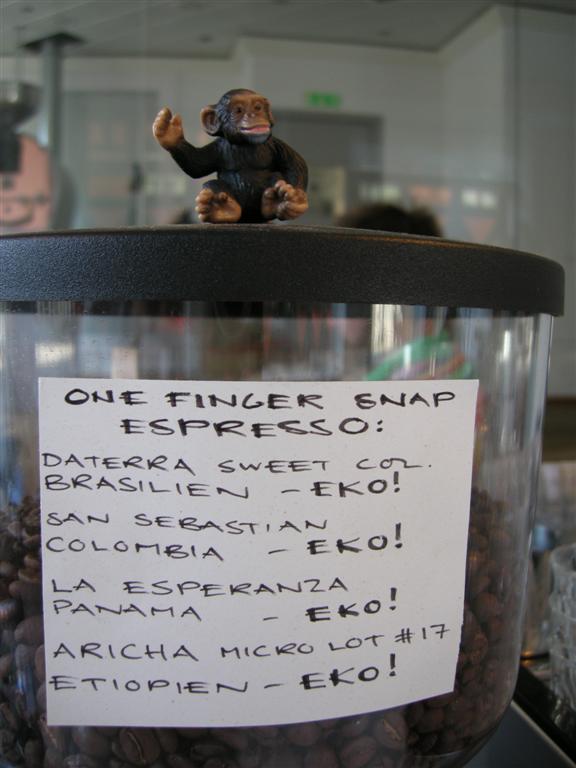 ONE FINGER SNAP
ESPRESSO:
DATERRA SWEET COL.
BRASILIEN - EKO!
SAN SEBASTIAN
COLOMBIA - EKO!
LA ESPERANZA
PANAMA - EKO!
ARICHA MICRO LOT #17
ETIOPIEN - EKO!